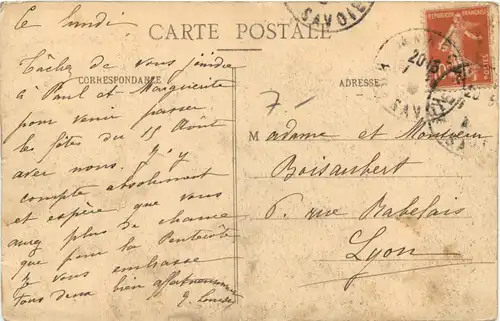 Ce lundi
CARTE POSTALE
CORRESPONDANCE
ADRESSE
Tâchez de vous joindre
à Paul et Marguerite
pour venir passer
les fêtes du 15 Août
avec nous. J'y
compte absolument
et espère que vous
aurez plus de chance
que pour la Pentecôte
Je vous embrasse
tous deux bien affectueusement
7.-
Madame et Monsieur
Boisaubert
6, rue Rabelais
Lyon
SAVOIE
REPUBLIQUE FRANÇAISE
POSTES
SAVOIE